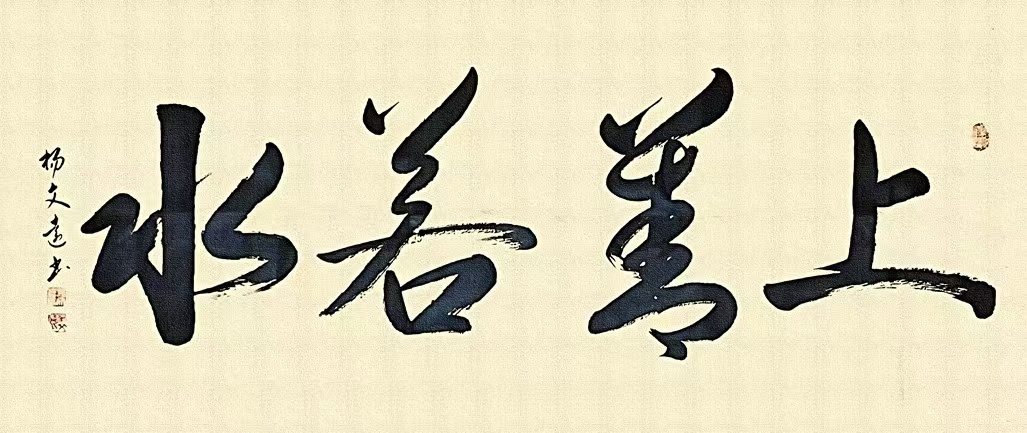 上善若水
杨文远书